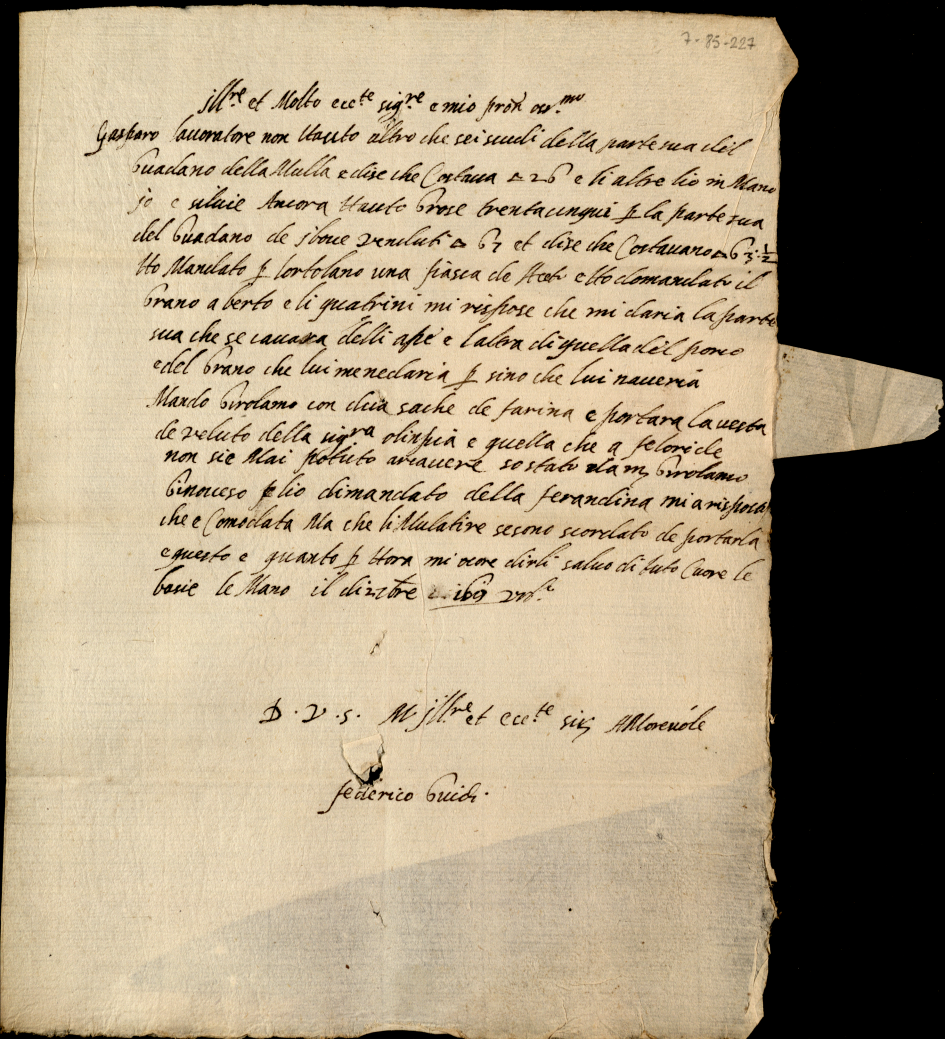 7-85-227
Ill.re et Molto ecc.te sig.re e mio pron oss.mo
Gasparo lavoratore non Hauto altro che sei scudi della parte sua del
Guadano della Mulla e dise che Costava 26 e li altre lio in Mano
io e silvie Ancora Hauto Grose trentacinqui p la parte sua
del Guadano de j bove venduti 67 et dise che Costavano 63 1/2
Ho Mandato p lortolano una fiasca de e Ho domandato il
Grano a berto e li quatrini mi rispose che mi daria la parte
sua che se cavara delli ape e laltra di quella del porco
e del Grano che lui menedaria p sino che lui naveria
Mando Girolamo con doia sache de farina e portara la vesta
de veluto della sig.ra olinpia e quella che a feloride
non sie Mai potuto ariavere so stato da m Girolamo
Ginoveso p lio dimandato della ferandina mi a risposto
che e Comodata Ma che li Mulatire sesono scordato de portarla
e questo e quanto p Hora mi ocore dirli salvo di tuto Cuore le
basie le Mano il di xbre
D. V. S. M Ill.re et ecc.te sig AMorevole
federico Guidi.